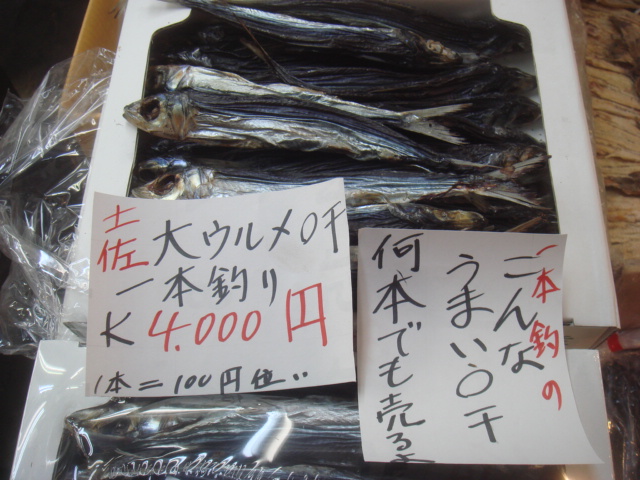 土佐大ウルメ〇干
一本釣り
K 4.000円
1本=100円位..
一本釣の
こんな
うまい〇干
何本でも売るよ